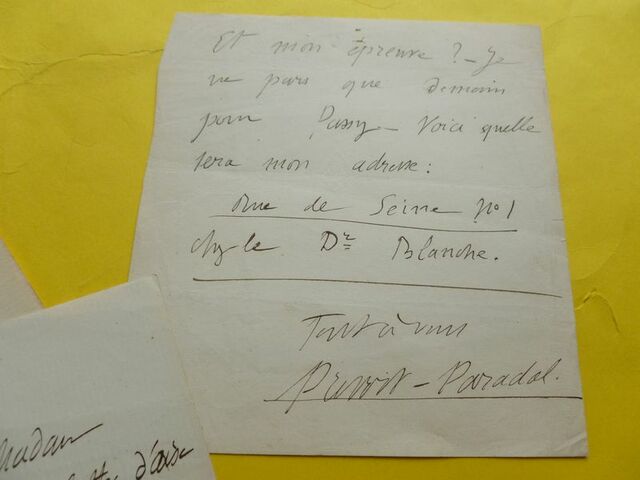 Et mon épreuve ? - Je
ne pars que demain
pour Passy - Voici quelle
sera mon adresse :
Rue de Seine no 1
chez le Dr Blanche.
Tout à vous
Prevost-Paradol.
Madam
d'avise